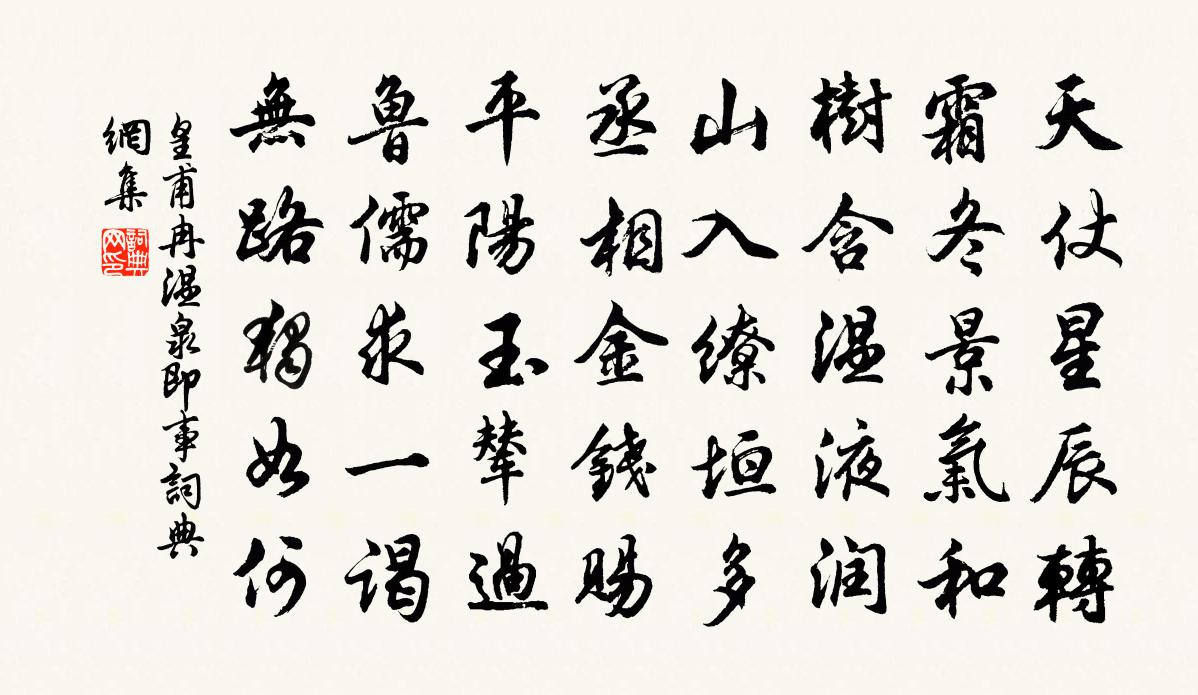 天仗星辰轉
霜冬景氣和
樹含温液润
山入繚垣多
丞相金錢賜
平陽玉輦過
魯儒求一谒
無路獨如何
皇甫冉温泉即事詞典
網集
詞典
网印